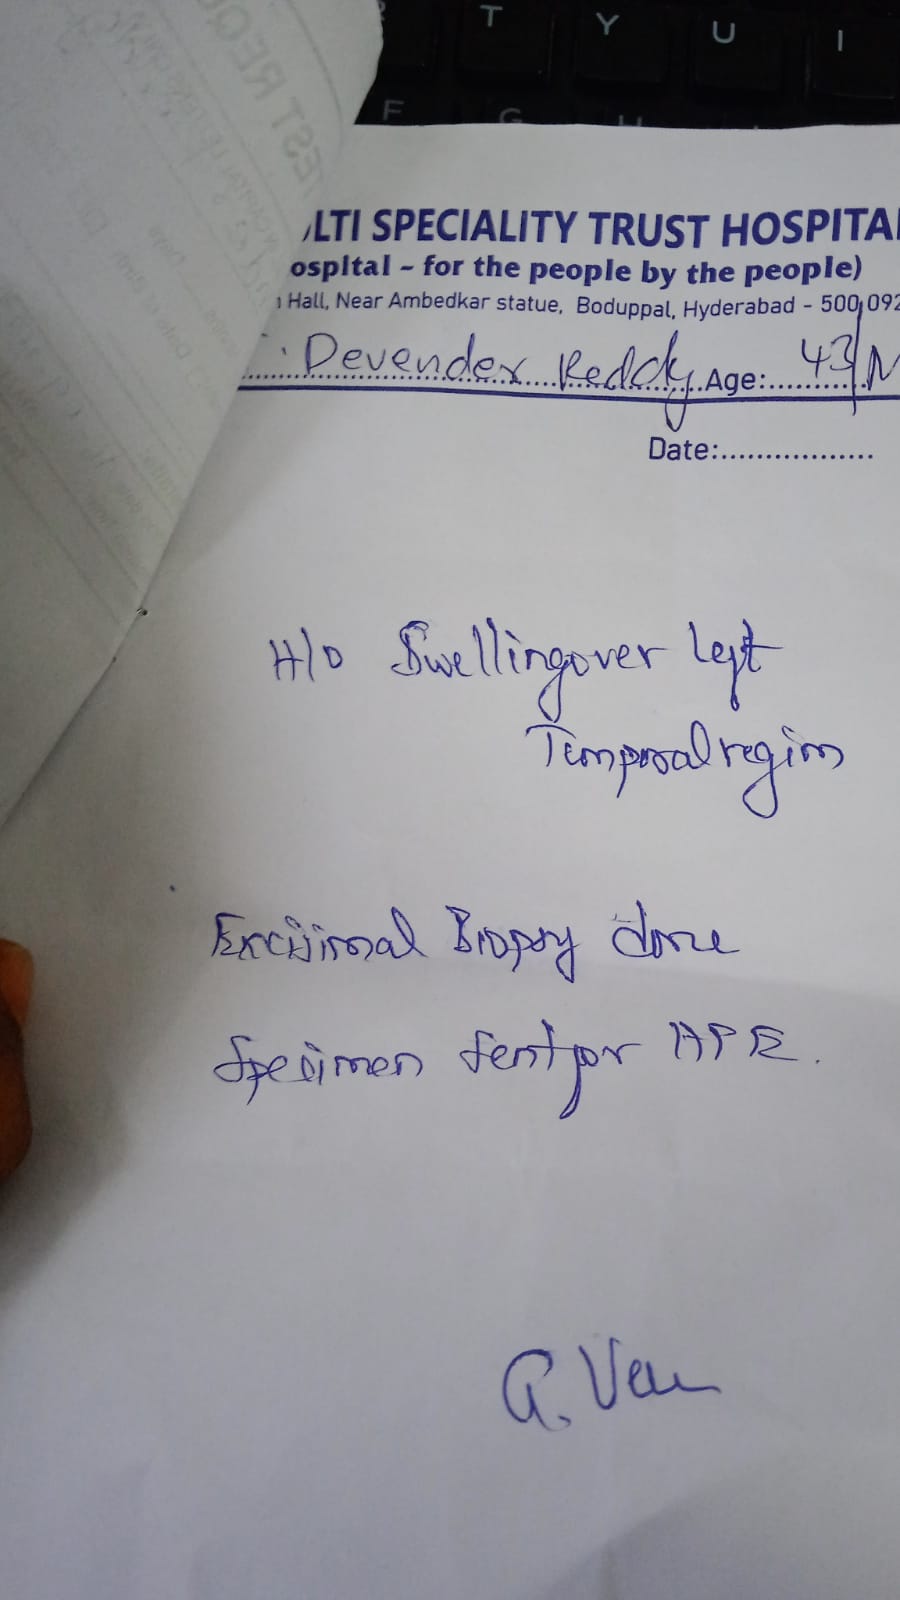 T Y U I
F G H
EST REQU
LTI SPECIALITY TRUST HOSPITA
ospital - for the people by the people)
Hall, Near Ambedkar statue, Boduppal, Hyderabad - 500 092
Devender Reddy Age: 43/M
Date:..................
H/O Swelling over left
Temporal region
Excisional Biopsy done
Specimen sent for HPE.